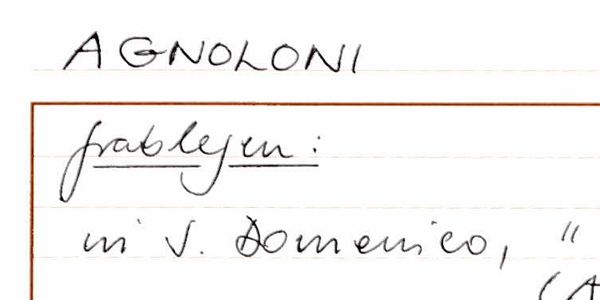 AGNOLONI
Grablegen:
in S. Domenico, "
(A